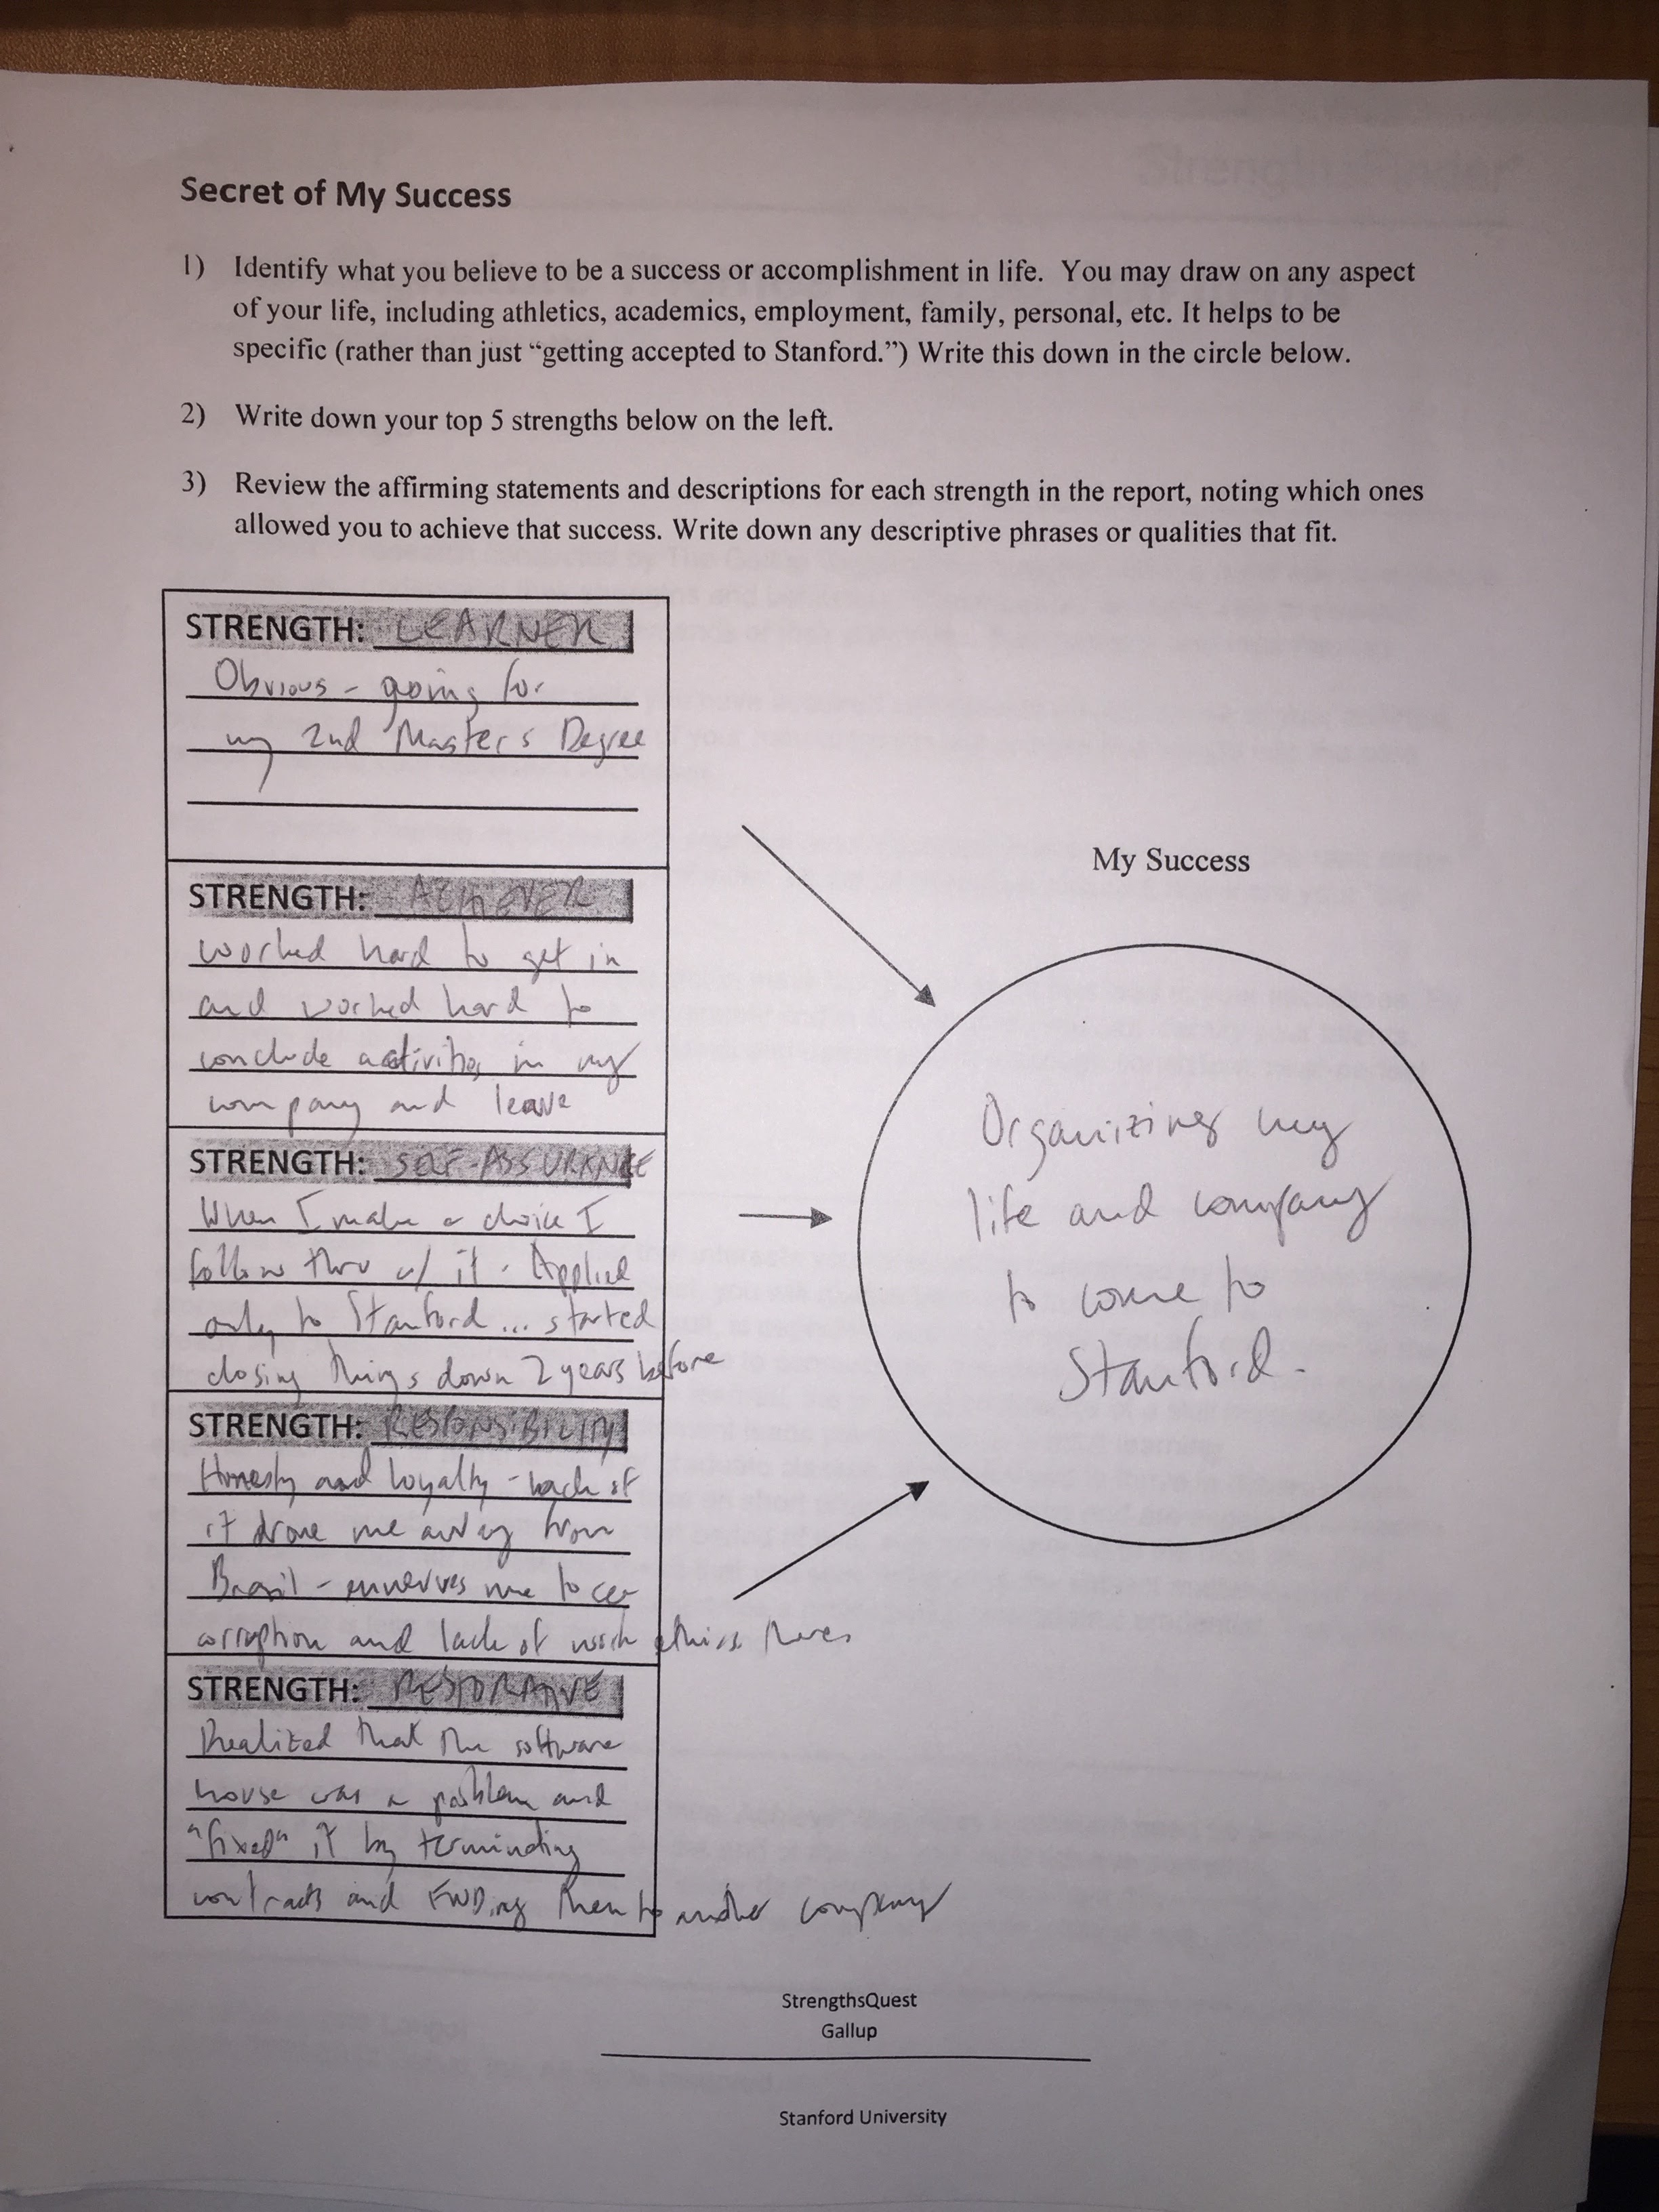 Secret of My Success
1) Identify what you believe to be a success or accomplishment in life. You may draw on any aspect
of your life, including athletics, academics, employment, family, personal, etc. It helps to be
specific (rather than just “getting accepted to Stanford.”) Write this down in the circle below.
2) Write down your top 5 strengths below on the left.
3) Review the affirming statements and descriptions for each strength in the report, noting which ones
allowed you to achieve that success. Write down any descriptive phrases or qualities that fit.
STRENGTH: LEARNER
Obvious - going for
my 2nd Master's Degree
STRENGTH: ACHIEVER
worked hard to get in
and worked hard to
conclude activities in my
company and leave
STRENGTH: SELF-ASSURANCE
When I make a choice I
follow thru w/ it. Applied
only to Stanford... started
closing things down 2 years before
STRENGTH: RESPONSIBILITY
Honesty and loyalty - lack of
it drove me away from
Brasil - me to see
corruption and lack of work ethics there
STRENGTH: RESTORATIVE
Realized that the software
house was a problem and
"fixed" it by terminating
contracts and them to another company
My Success
Organizing my
life and company
to come to
Stanford.
StrengthsQuest
Gallup
Stanford University